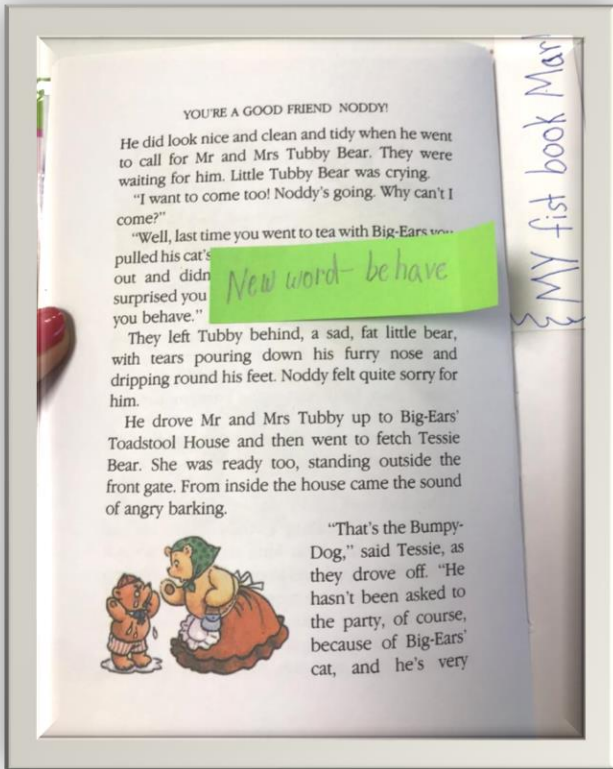 YOU'RE A GOOD FRIEND NODDY!
He did look nice and clean and tidy when he went
to call for Mr and Mrs Tubby Bear. They were
waiting for him. Little Tubby Bear was crying.
"I want to come too! Noddy's going. Why can't I
come?"
"Well, last time you went to tea with Big-Ears you
pulled his cat's
out and didn
surprised you
you behave."
New word - behave
They left Tubby behind, a sad, fat little bear,
with tears pouring down his furry nose and
dripping round his feet. Noddy felt quite sorry for
him.
He drove Mr and Mrs Tubby up to Big-Ears'
Toadstool House and then went to fetch Tessie
Bear. She was ready too, standing outside the
front gate. From inside the house came the sound
of angry barking.
"That's the Bumpy-
Dog," said Tessie, as
they drove off. "He
hasn't been asked to
the party, of course,
because of Big-Ears'
cat, and he's very
MY fist book Mar